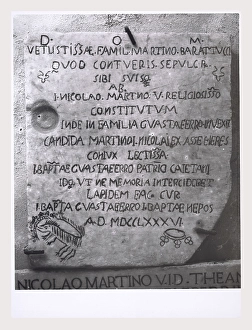 D. O. M.
VETUSTISSÆ FAMIL MARTINO
QUOD CONTVERIS SEPVLCR
SIBI SVISQ
AB
I. NICOLAO MARTNO V. RELIGIOSISSO
CONSTITVTVM
INDE IN FAMILIA GVASTAFERRO
CANDIDA MARTINO I. NICOLAI EX ASSE HERES
CONIVX LECTISSA
I. BAPTAE GVASTAFERRO PATRIO CAIETANI
IDQ VT NE MEMORIA INTERCIDERET
LAPIDEM FAC CVR
I. BAPTA GVASTAFERRO I. BAPTAE NEPOS
A. D. MDCCLXXXVI
NICOLAO MARTINO V.I.D. THEAN